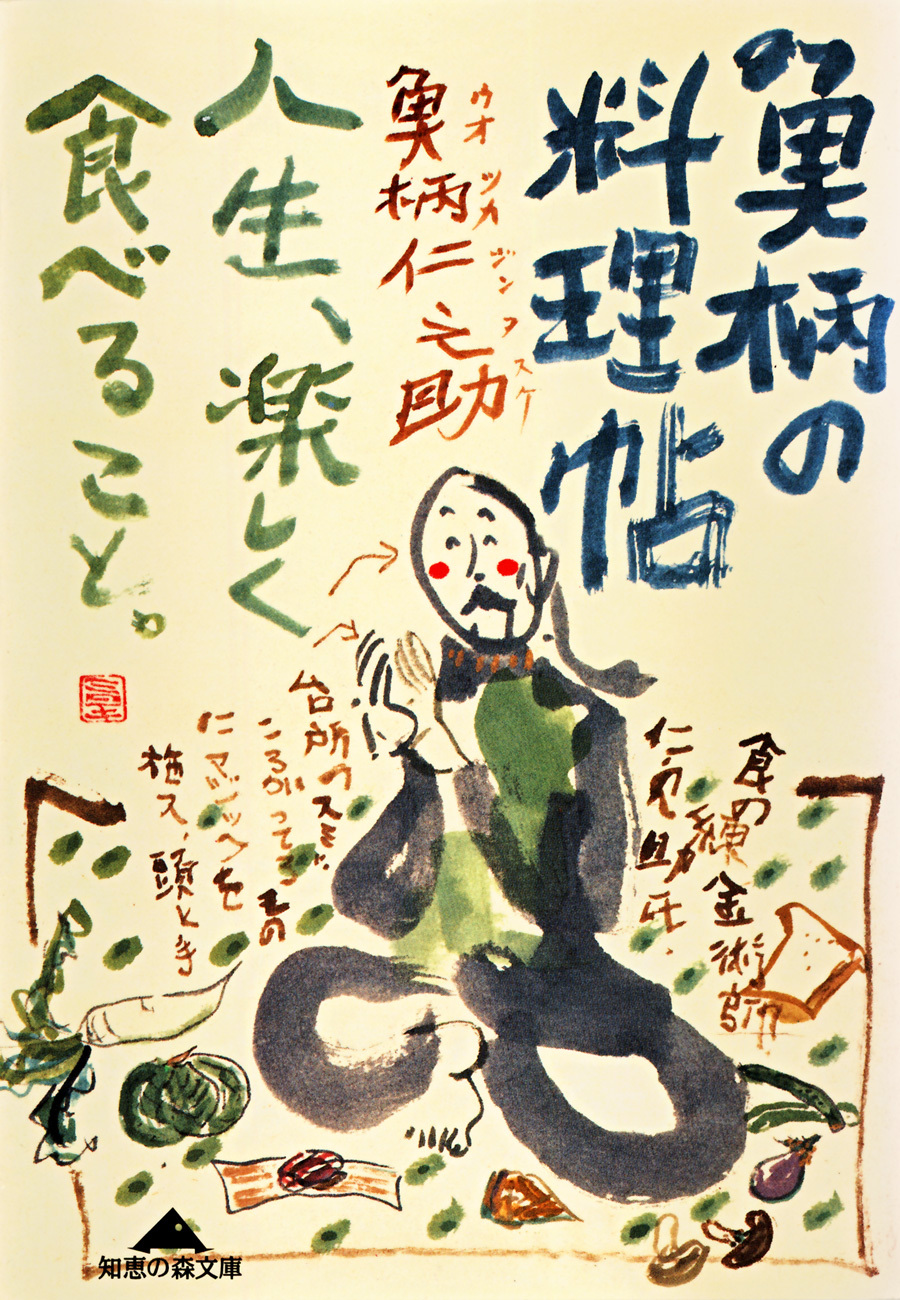 魚柄の
料理帖
魚柄仁之助
ウオ ツカ ジン ノ スケ
人生、楽しく
食べること。
食の錬金術師
仁之助氏.
台所のスミに
ころがってるもの
にマッサージを
施ス、頭とき
知恵の森文庫